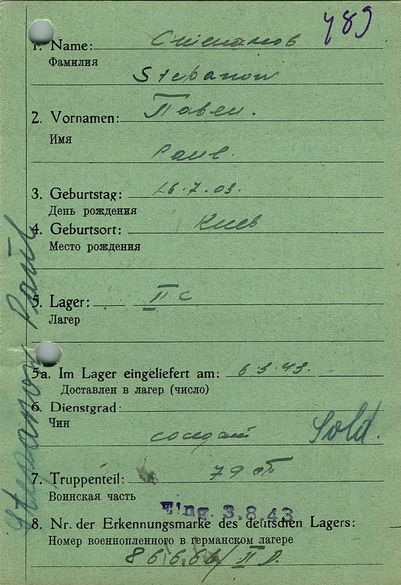 489
1. Name: Степанов
Фамилия
Stepanow
2. Vornamen: Павел.
Имя
Paul.
3. Geburtstag: 26.7.03.
День рождения
4. Geburtsort: Киев
Место рождения
5. Lager: II C
Лагерь
5a. Im Lager eingeliefert am: 6 3.43.
Доставлен в лагерь (число)
6. Dienstgrad:
Чин
солдат Sold.
7. Truppenteil: 79
Воинская часть
Eing. 3.8.43
8. Nr. der Erkennungsmarke des deutschen Lagers:
Номер военнопленного в германском лагере
86666/ II
Stepanow Paul